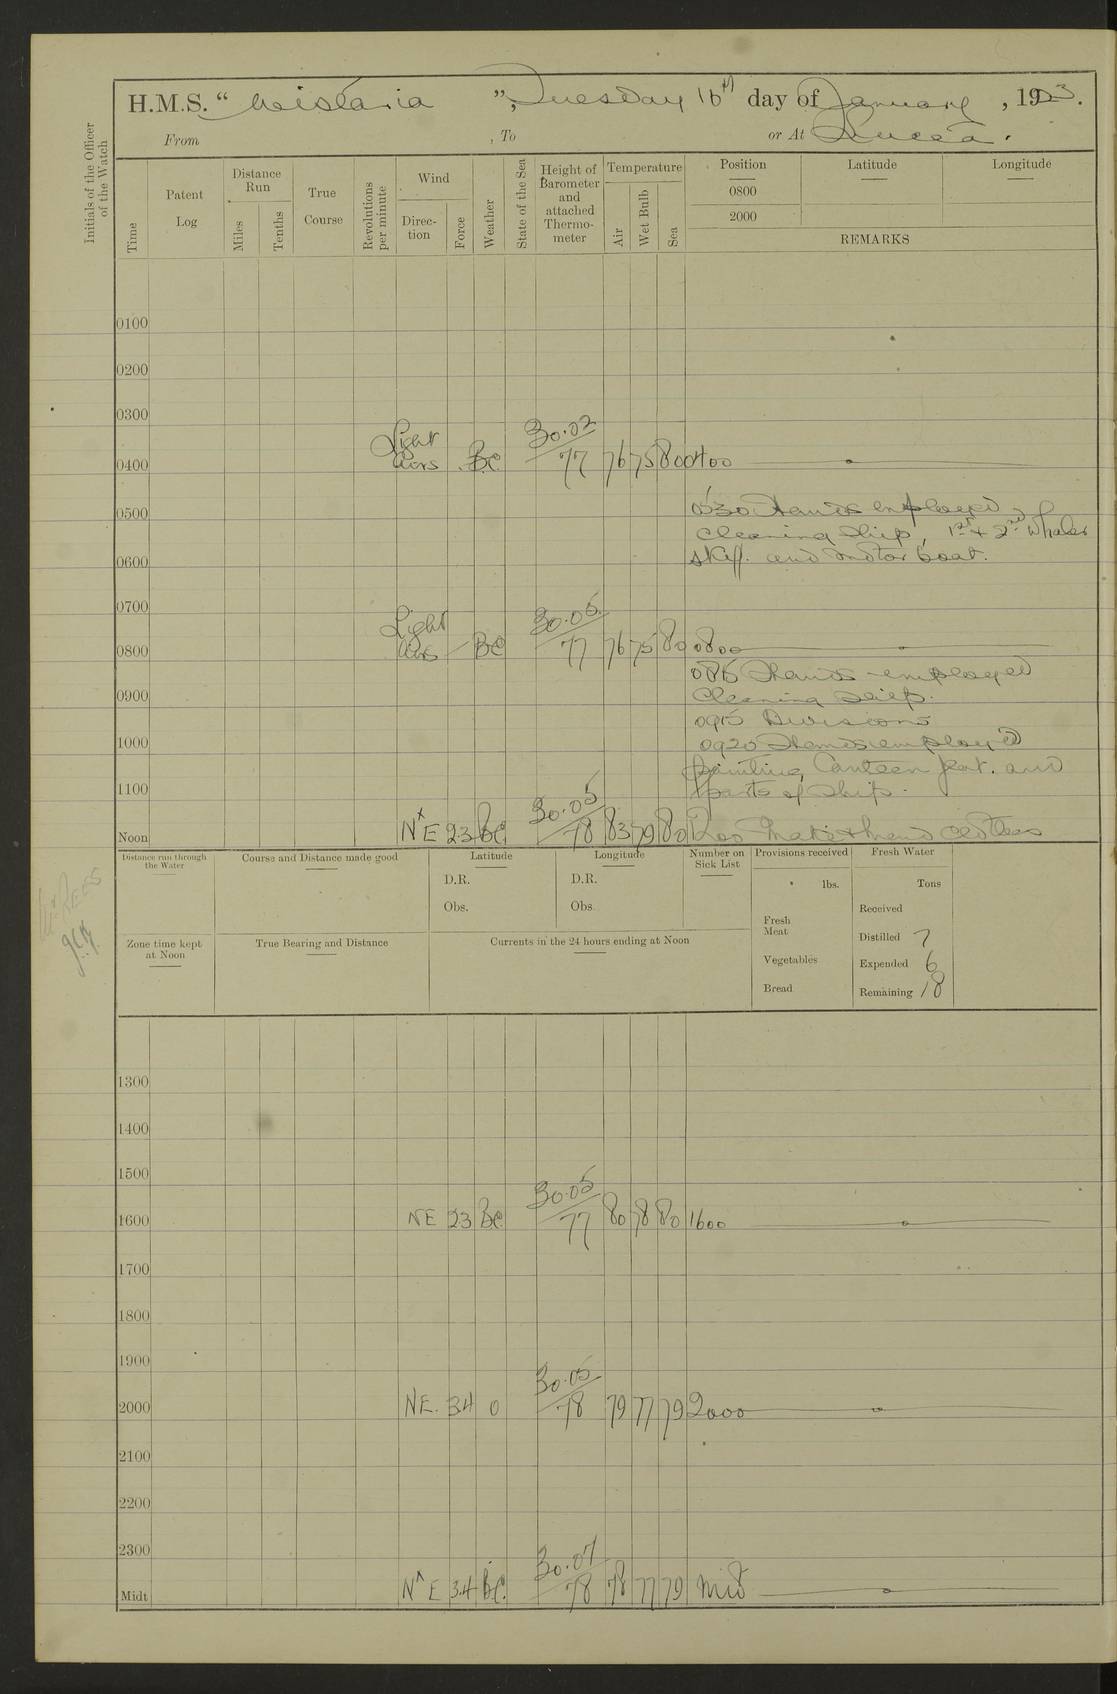 H.M.S. " Wistaria ", Tuesday 16th day of January, 1923.
From , To or At Lucea.
Initials of the Officer of the Watch
Time Patent Log Distance Run Miles Tenths True Course Revolutions per minute Wind Direction Force Weather State of the Sea Height of Barometer and attached Thermometer Temperature Air Wet Bulb Sea Position Latitude Longitude
0800
2000
REMARKS
0100
0200
0300
0400 Light Airs BC 30.02 77 76 75 80 0400
0500 0530 Hands employed
cleaning ship, 1st & 2nd Whaler
0600 skiff. and motor boat.
0700
0800 Light Airs BC 30.05 77 76 75 80 0800
0815 Hands employed
0900 Cleaning Ship.
0915 Divisions
1000 0920 Hands employed
painting Canteen flat. and
1100 parts of ship.
Noon NxE 23 BC 30.05 78 83 79 80 1200 Make & mend clothes
Distance run through the Water
Course and Distance made good
Latitude
D.R.
Obs.
Longitude
D.R.
Obs.
Number on Sick List
Provisions received
lbs.
Fresh Meat
Vegetables
Bread
Fresh Water
Tons
Received
Distilled 7
Expended 6
Remaining 18
Zone time kept at Noon
True Bearing and Distance
Currents in the 24 hours ending at Noon
1300
1400
1500
1600 NE 23 BC 30.05 77 80 78 80 1600
1700
1800
1900
2000 NE. 34 0 30.05 78 79 77 79 2000
2100
2200
2300
Midt NxE 34 BC. 30.07 78 78 77 79 Mid